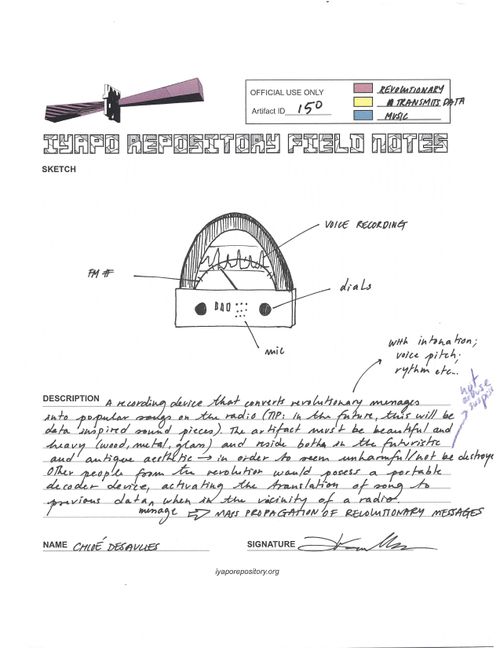 OFFICIAL USE ONLY
Artifact ID 150
REVOLUTIONARY
TRANSMITS DATA
MUSIC
IYAPO REPOSITORY FIELD NOTES
SKETCH
VOICE RECORDING
FM #
dials
mic
with intonation;
voice pitch;
rythm etc..
not
DESCRIPTION A recording device that converts revolutionary messages
into popular songs on the radio (TIP: in the future, this will be
data inspired sound pieces). The artifact must be beautiful and
heavy (wood, metal, glass) and reside both in the futuristic
and antique aesthetic → in order to seem unharmful/not be destroye
Other people from the revolution would posess a portable
decoder device, activating the translation of song to
previous data, when in the vicinity of a radio
message ⇨ MASS PROPAGATION OF REVOLUTIONARY MESSAGES
NAME CHLOÉ DESAULLES
SIGNATURE
iyaporepository.org